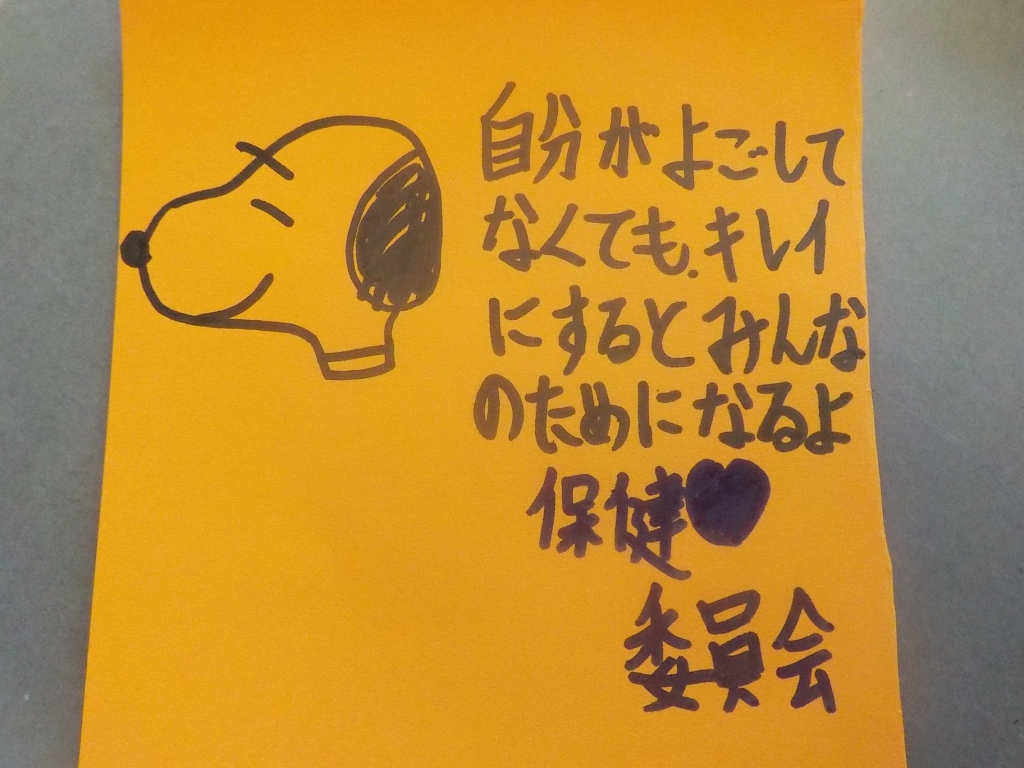 自分がよごして
なくても、キレイ
にするとみんな
のためになるよ
保健♥
委員会